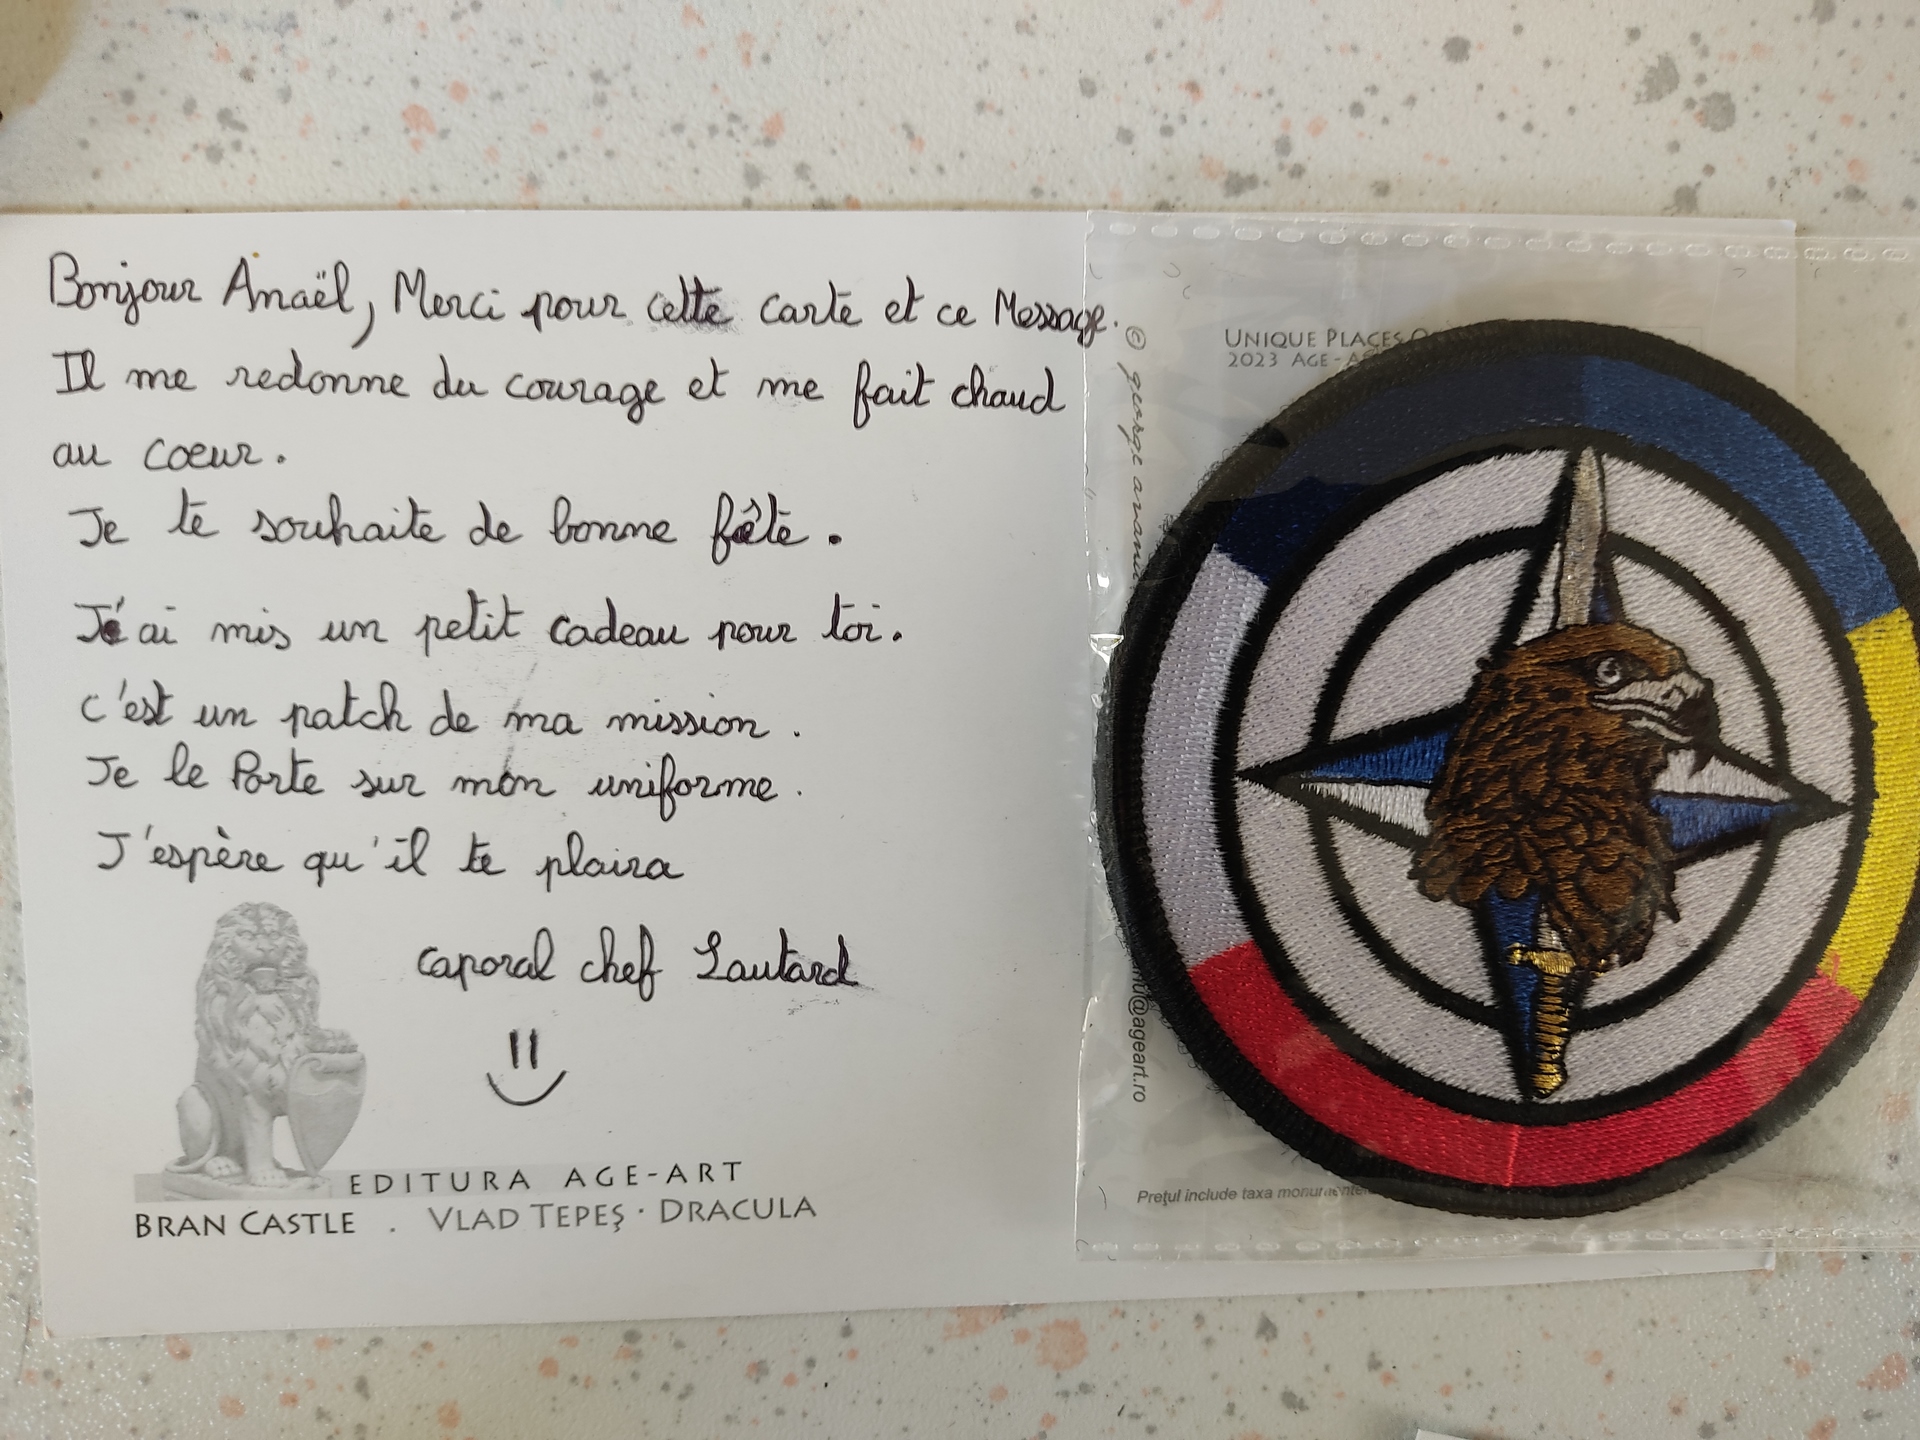 Bonjour Anaël, Merci pour cette carte et ce Message.
Il me redonne du courage et me fait chaud
au coeur.
Je te souhaite de bonne fête.
J'ai mis un petit cadeau pour toi.
c'est un patch de ma mission.
Je le Porte sur mon uniforme.
J'espère qu'il te plaira
caporal chef Lautard
EDITURA AGE-ART
BRAN CASTLE . VLAD TEPEŞ · DRACULA
UNIQUE PLACES
2023 AGE-A
© george
@ageart.ro
Preţul include taxa